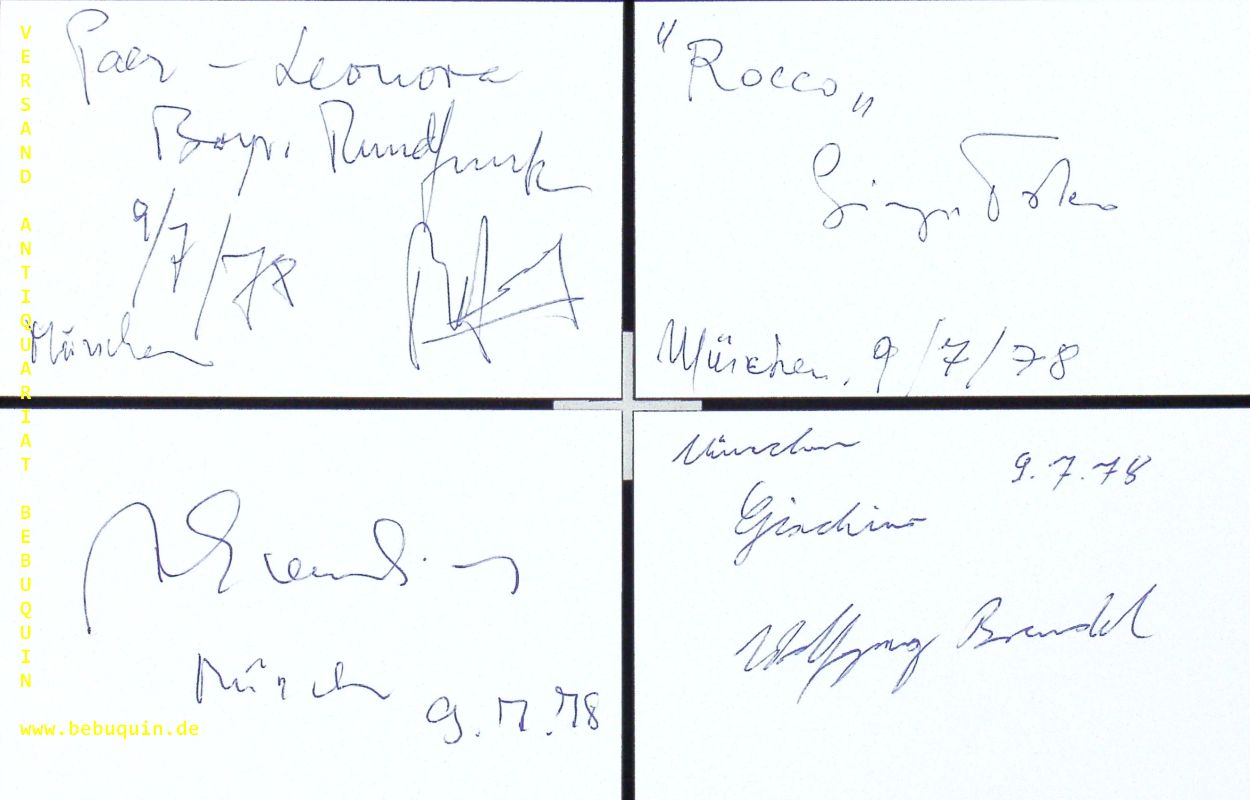 Paer - Leonora
Bayr. Rundfunk
9/7/78
München
"Rocco"
München, 9/7/78
München
9.7.78
München 9.7.78
Giachino
Wolfgang Brendel
VERSAND ANTIQUARIAT BEBUQUIN
www.bebuquin.de